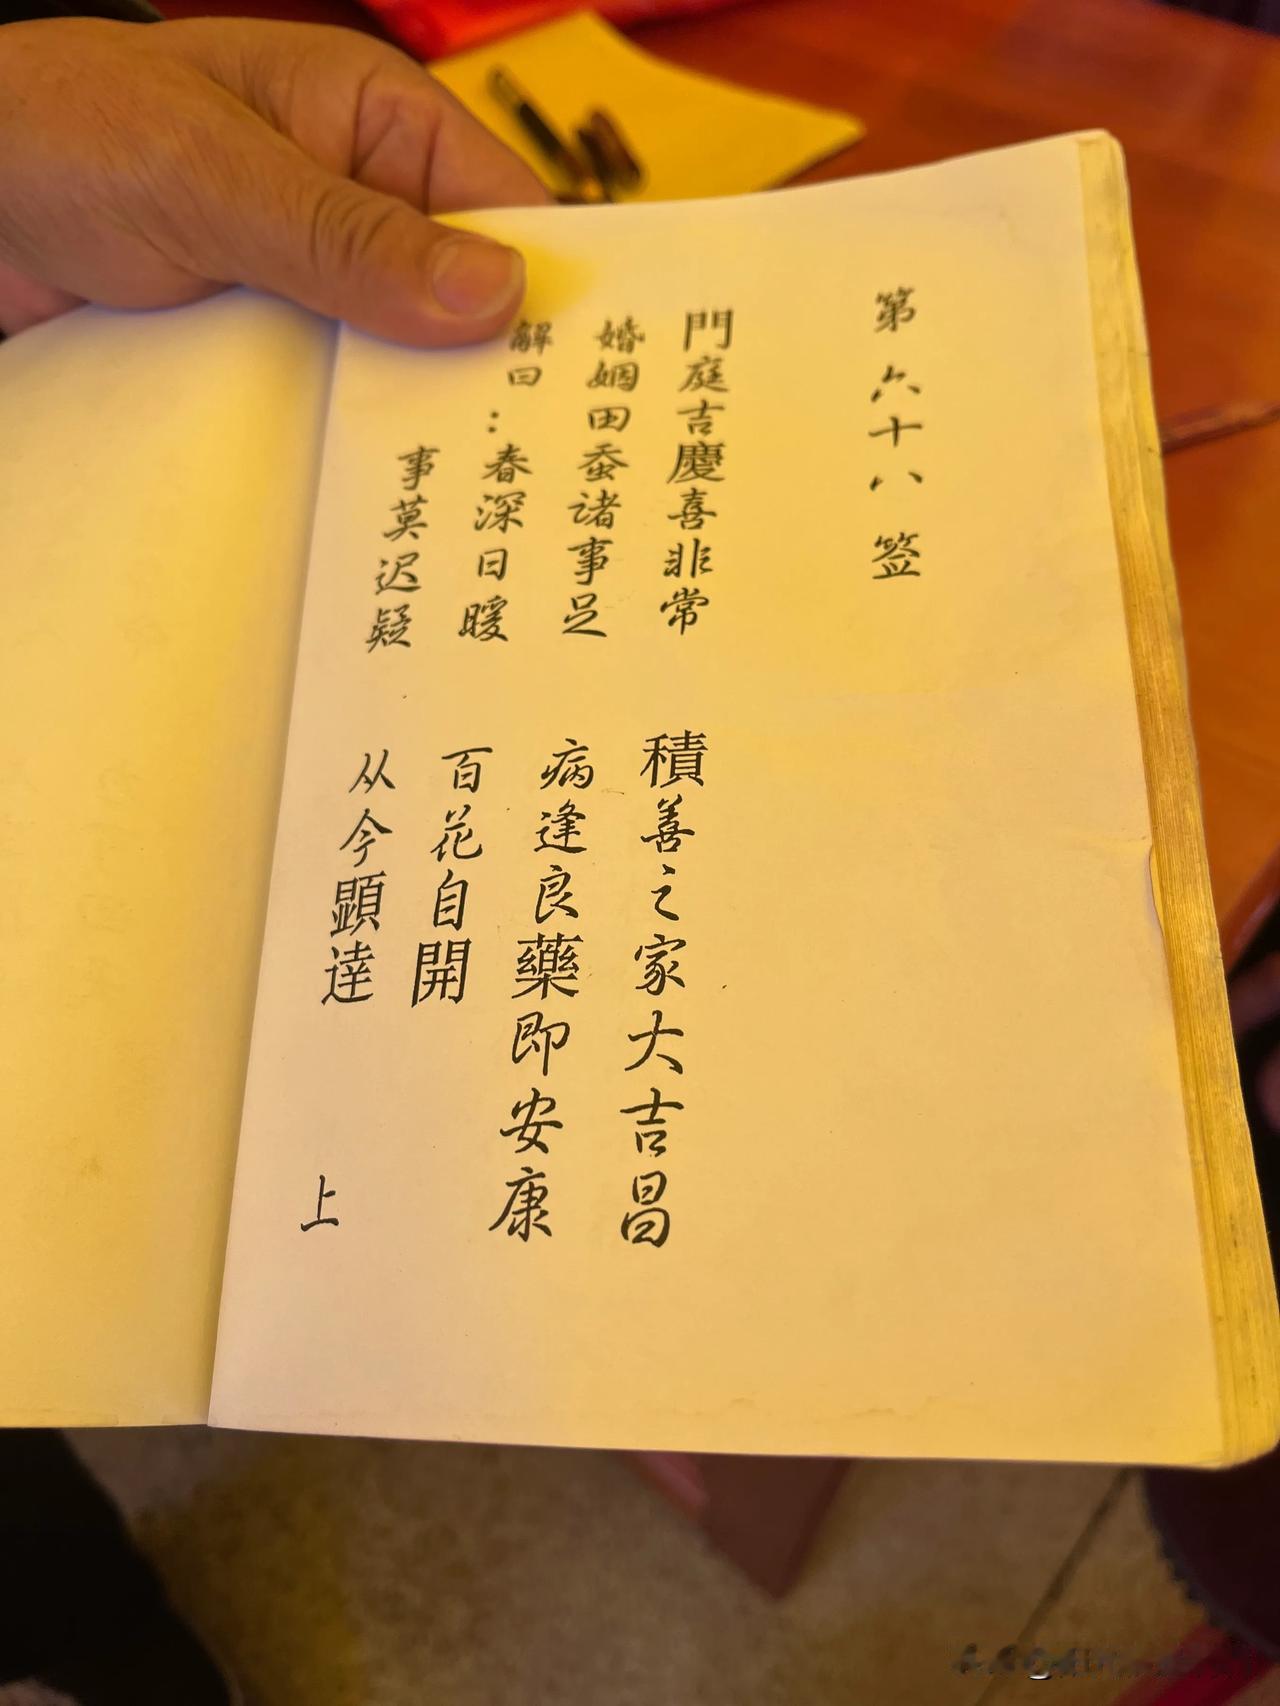 第六十八签
門庭吉慶喜非常 積善之家大吉昌
婚姻田蚕诸事足 病逢良藥即安康
解曰：春深日暖 百花自開
事莫迟疑 从今顕達
上